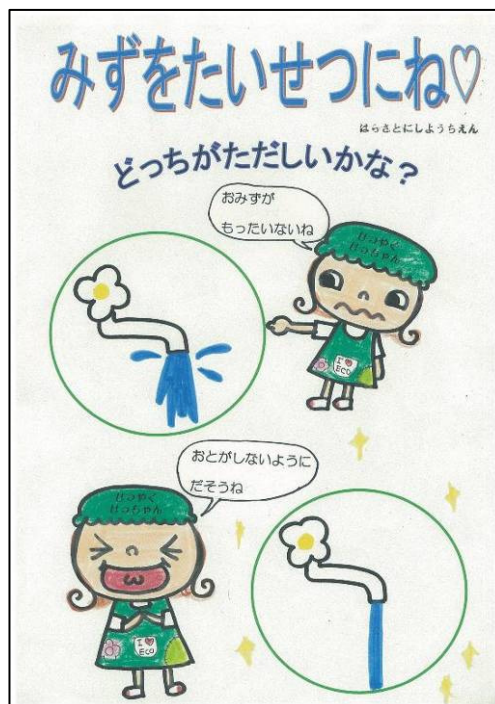 みずをたいせつにね♡
はらさとにしようちえん
どっちがただしいかな？
おみずが
もったいないね
せつやく
せっちゃん
I ♥
ECO
おとがしないように
だそうね
せつやく
せっちゃん
I ♥
ECO